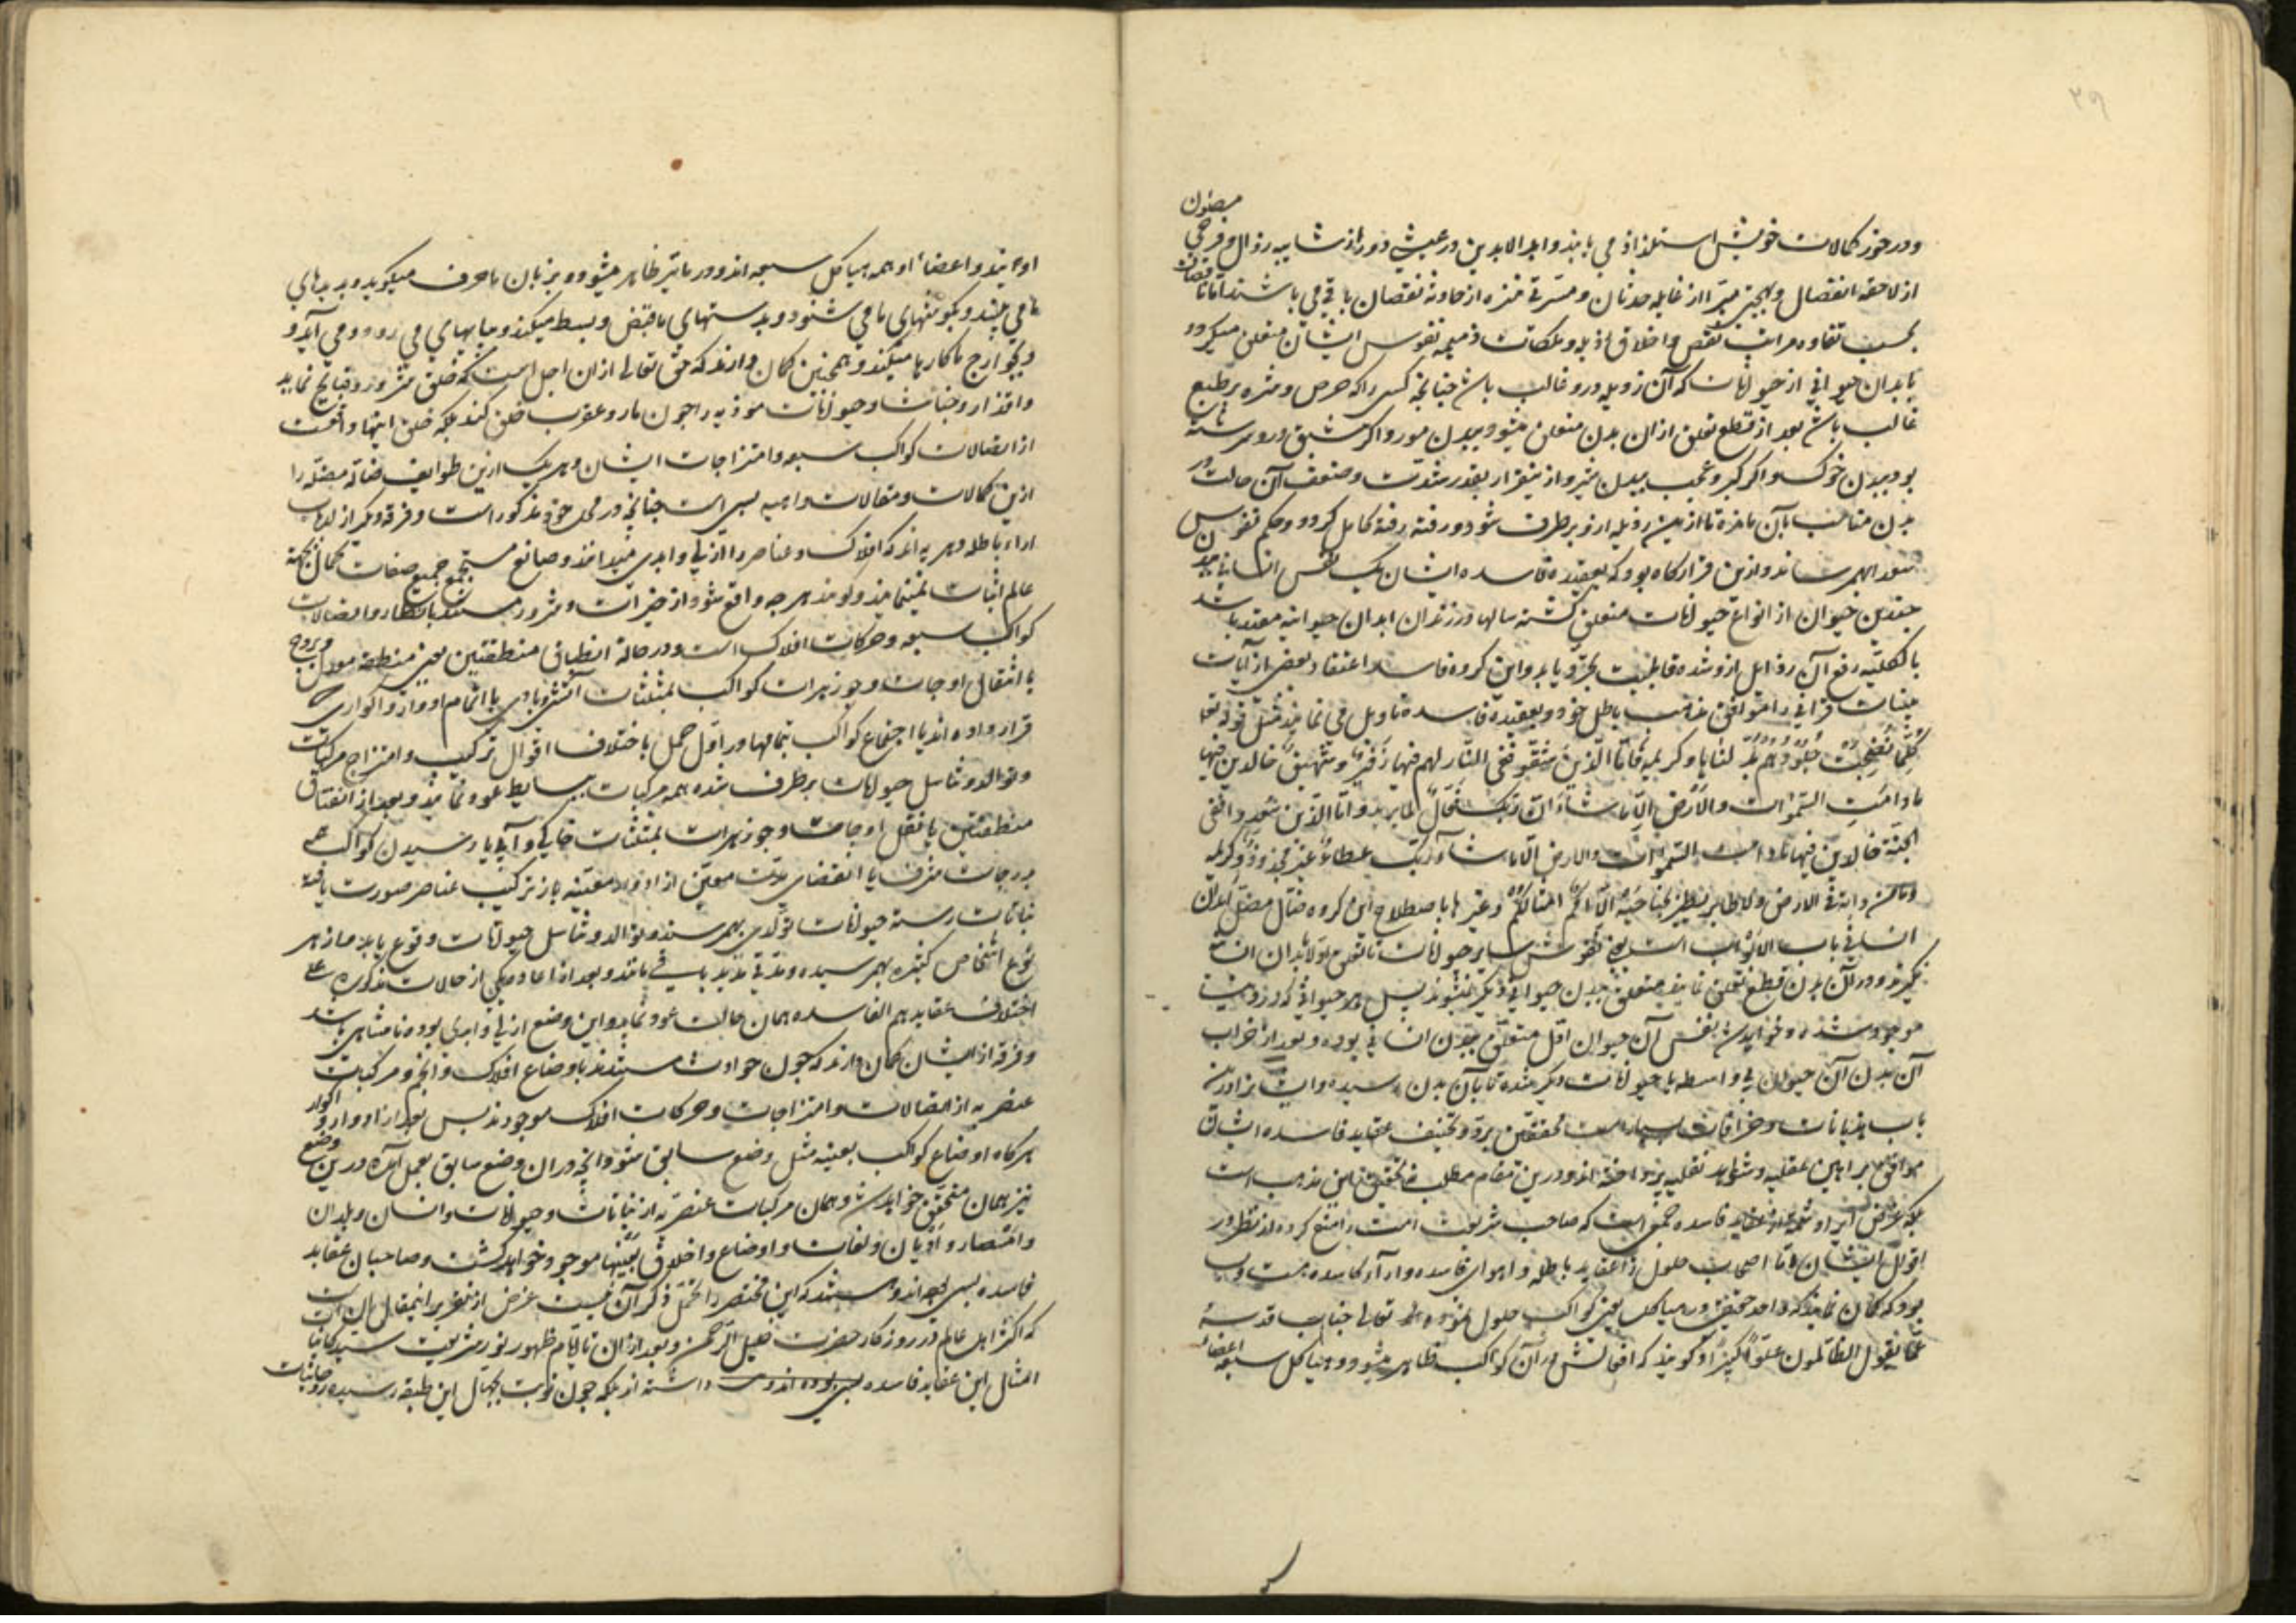 ۲۹
مصون
ودر خور کمالات خویش استلذاذ می یابند وابد الابدین در عیشی دور از شایبه زوال و فرحی
از لاحقه انفصال و بهجتی مبرا از غایله حدثان و مسرتی منزه از حادثه نقصان باقی می باشند اما ناقصان
بحسب تفاوت مراتب نقص و اخلاق رذیله و ملکات ذمیمه نفوس ایشان متعلق میگردد
بابدان حیوانی از حیوانات که آن رذیله درو غالب باشد چنانچه کسی را که حرص و شره بر طبع
غالب باشد بعد از قطع تعلق ازان بدن متعلق میشود ببدن مور و اگر شبق درو سرشته
بود ببدن خوک و اگر کبر و عجب ببدن شیر و ازینقرار بقدر شدت و ضعف آن حالت در
بدن مناسب بآن مانده تا ازین رذیله ازو برطرف شود و رفته رفته کامل گردد و حکم نفوس
سعدا بهم رساند و ازین قرار گاه بود که بعقیده فاسده ایشان یک نفس انسانی با چند
چندین حیوان از انواع حیوانات متعلق گشته سالها در زندان ابدان حیوانیه مقید باشد
بالکلیه رفع آن رذایل ازو شده قابلیت تجرد یابد و این گروه فاسد اعتقاد بعضی از آیات
بینات قرآنی را موافق مذهب باطل خود و بعقیده فاسده تاویل می نمایند مثل قوله تعالی
کلما نضجت جلودهم بدلناها و کریمه فاما الذین شقوا ففی النار لهم فیها زفیر و شهیق خالدین فیها
مادامت السموات والارض الا ما شاء ربک ان ربک فعال لما یرید و اما الذین سعدوا ففی
الجنة خالدین فیها مادامت السموات والارض الا ما شاء ربک عطاء غیر مجذوذ و کریمه
و ما من دابة فی الارض ولا طایر یطیر بجناحیه الا امم امثالکم و غیرها باصطلاح این گروه ضال مضل ابدان
انسانی باب الابواب است یعنی نفوس سایر حیوانات تا تعلق اولا بابدان انسان
نگیرند و در آن بدن قطع تعلق ننمایند متعلق ببدن حیوانی دیگر نشوند پس هر حیوانی که در دنیا
موجود شده و خواهد شد نفس آن حیوان اول متعلق ببدن انسانی بوده و بعد از خراب
آن بدن آن حیوان بی واسطه یا حیوانات دیگر شده تا بآن بدن رسیده و ایشانرا درین
باب هذیانات و خرافات بسیار است محققین برد و تخفیف عقاید فاسده ایشان
موافق براهین عقلیه و شواهد نقلیه پرداخته اند و درین مقام مطلب تحقیق این مذهب است
بلکه غرض ایراد شمه از عقاید فاسده جمعی است که صاحب شریعت امت را منع کرده از نظر در
اقوال ایشان و اما اصحاب حلول از عقاید باطله و اهوای فاسده و آراء کاسده
بود که گمان نمایند که واحد حقیقی در هیاکل یعنی کواکب حلول نموده تعالی جناب قدسه
عما یقول الظالمون علوا کبیرا و گویند که افعالش از آن کواکب ظاهر میشود و هیاکل سبعه اعضاء
اویند و اعضاء او همه هیاکل سبعه اند و در ما تاثیر ظاهر میشود و بزبان ما حرف میگوید و بدیدهای
ما می بیند و بگوشهای ما می شنود و بدستهای ما قبض و بسط میکند و بپاهای می رود و می آید و
و بجوارح ما کارها میکند و همچنین گمان دارند که حق تعالی ازان اجل است که خلق شرور و قبایح نماید
و اقذار و خباثت و حیوانات موذیه را چون مار و عقرب خلق کند بلکه خلق اینها واقعست
از اتصالات کواکب سبعه و امتزاجات ایشان و هر یک ازین طوایف ضاله مضله را
ازین کمالات و مقالات واهیه بسی است چنانچه در محل خود مذکور است و فرقه دیگر از اهل
اراء باطله دهریه اند که افلاک و عناصر را ازلی و ابدی میدانند و صانع مستجمع جمیع صفات کمال بجهة
عالم اثبات نمینمایند و گویند هر چه واقع شود از خیرات و شرور مستند بانظار و اتصالات
کواکب سبعه و حرکات افلاک است و در حالة انطباق منطقتین یعنی منطقه معدل و بروج
یا انتقال اوجات و جوزهرات کواکب بمثلثات آتشی و بادی یا اتمام ادوار و اکواری که
قرار داده اند یا اجتماع کواکب بتمامها در اول حمل باختلاف اقوال ترکیب و امتزاج مرکبات
و توالد و تناسل حیوانات برطرف شده همه مرکبات ببسایط عود نماید و بعد از انفتاق
منطقتین یا نقل اوجات و جوزهرات بمثلثات خاکی و آبی یا رسیدن کواکب
بدرجات شرف یا انقضای مدت معین از ادوار معینه باز ترکیب عناصر صورت یافته
نباتات رسته حیوانات تولدی بهم رسند و توالد و تناسل حیوانات وقوع یابد و از هر
نوع اشخاص کثیره بهم رسیده و مدتی مدید باقی باشد و بعد از اعاده یکی از حالات مذکوره علی
اختلاف عقایدهم الفاسده همان حالت عود نماید و این وضع ازلی و ابدی بوده نامتناهی باشد
و فرقه از ایشان گمان دارند که چون حوادث مستندند باوضاع افلاک و انجم و مرکبات
عنصریه از اتصالات و امتزاجات و حرکات افلاک موجودند پس بعد از ادوار و اکوار
هرگاه اوضاع کواکب بعینه مثل وضع سابق شود آنچه در آن وضع سابق بعمل آمده درین وضع
نیز همان متحقق خواهد شد و همان مرکبات عنصریه از نباتات و حیوانات و انسان و بلدان
و امصار و ادیان و لغات و اوضاع و اخلاق بعینها موجود خواهد گشت و صاحبان عقاید
فاسده بسی بوده اند و هستند که این مختصر را تحمل ذکر آن نیست غرض از تقریر اینمقال آن است
که اکثر اهل عالم در روزگار حضرت خلیل الرحمن و بعد ازان تا ایام ظهور نور شریعت سید کاینات
امثال این عقاید فاسده داشته اند بلکه چون نوبت بجهال این طبقه رسیده روحانیات